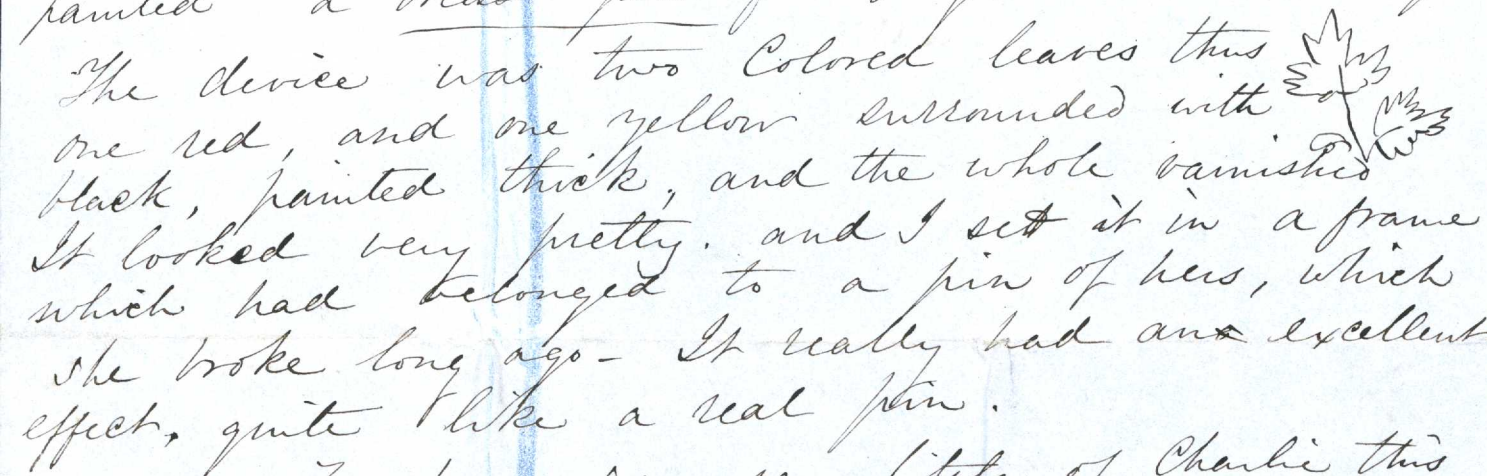 painted a
The device was two Colored leaves thus
one red, and one yellow surrounded with
black, painted thick, and the whole varnished
It looked very pretty. and I set it in a frame
which had belonged to a pin of hers, which
she broke long ago - It really had an excellent
effect, quite like a real pin.
of Charlie this